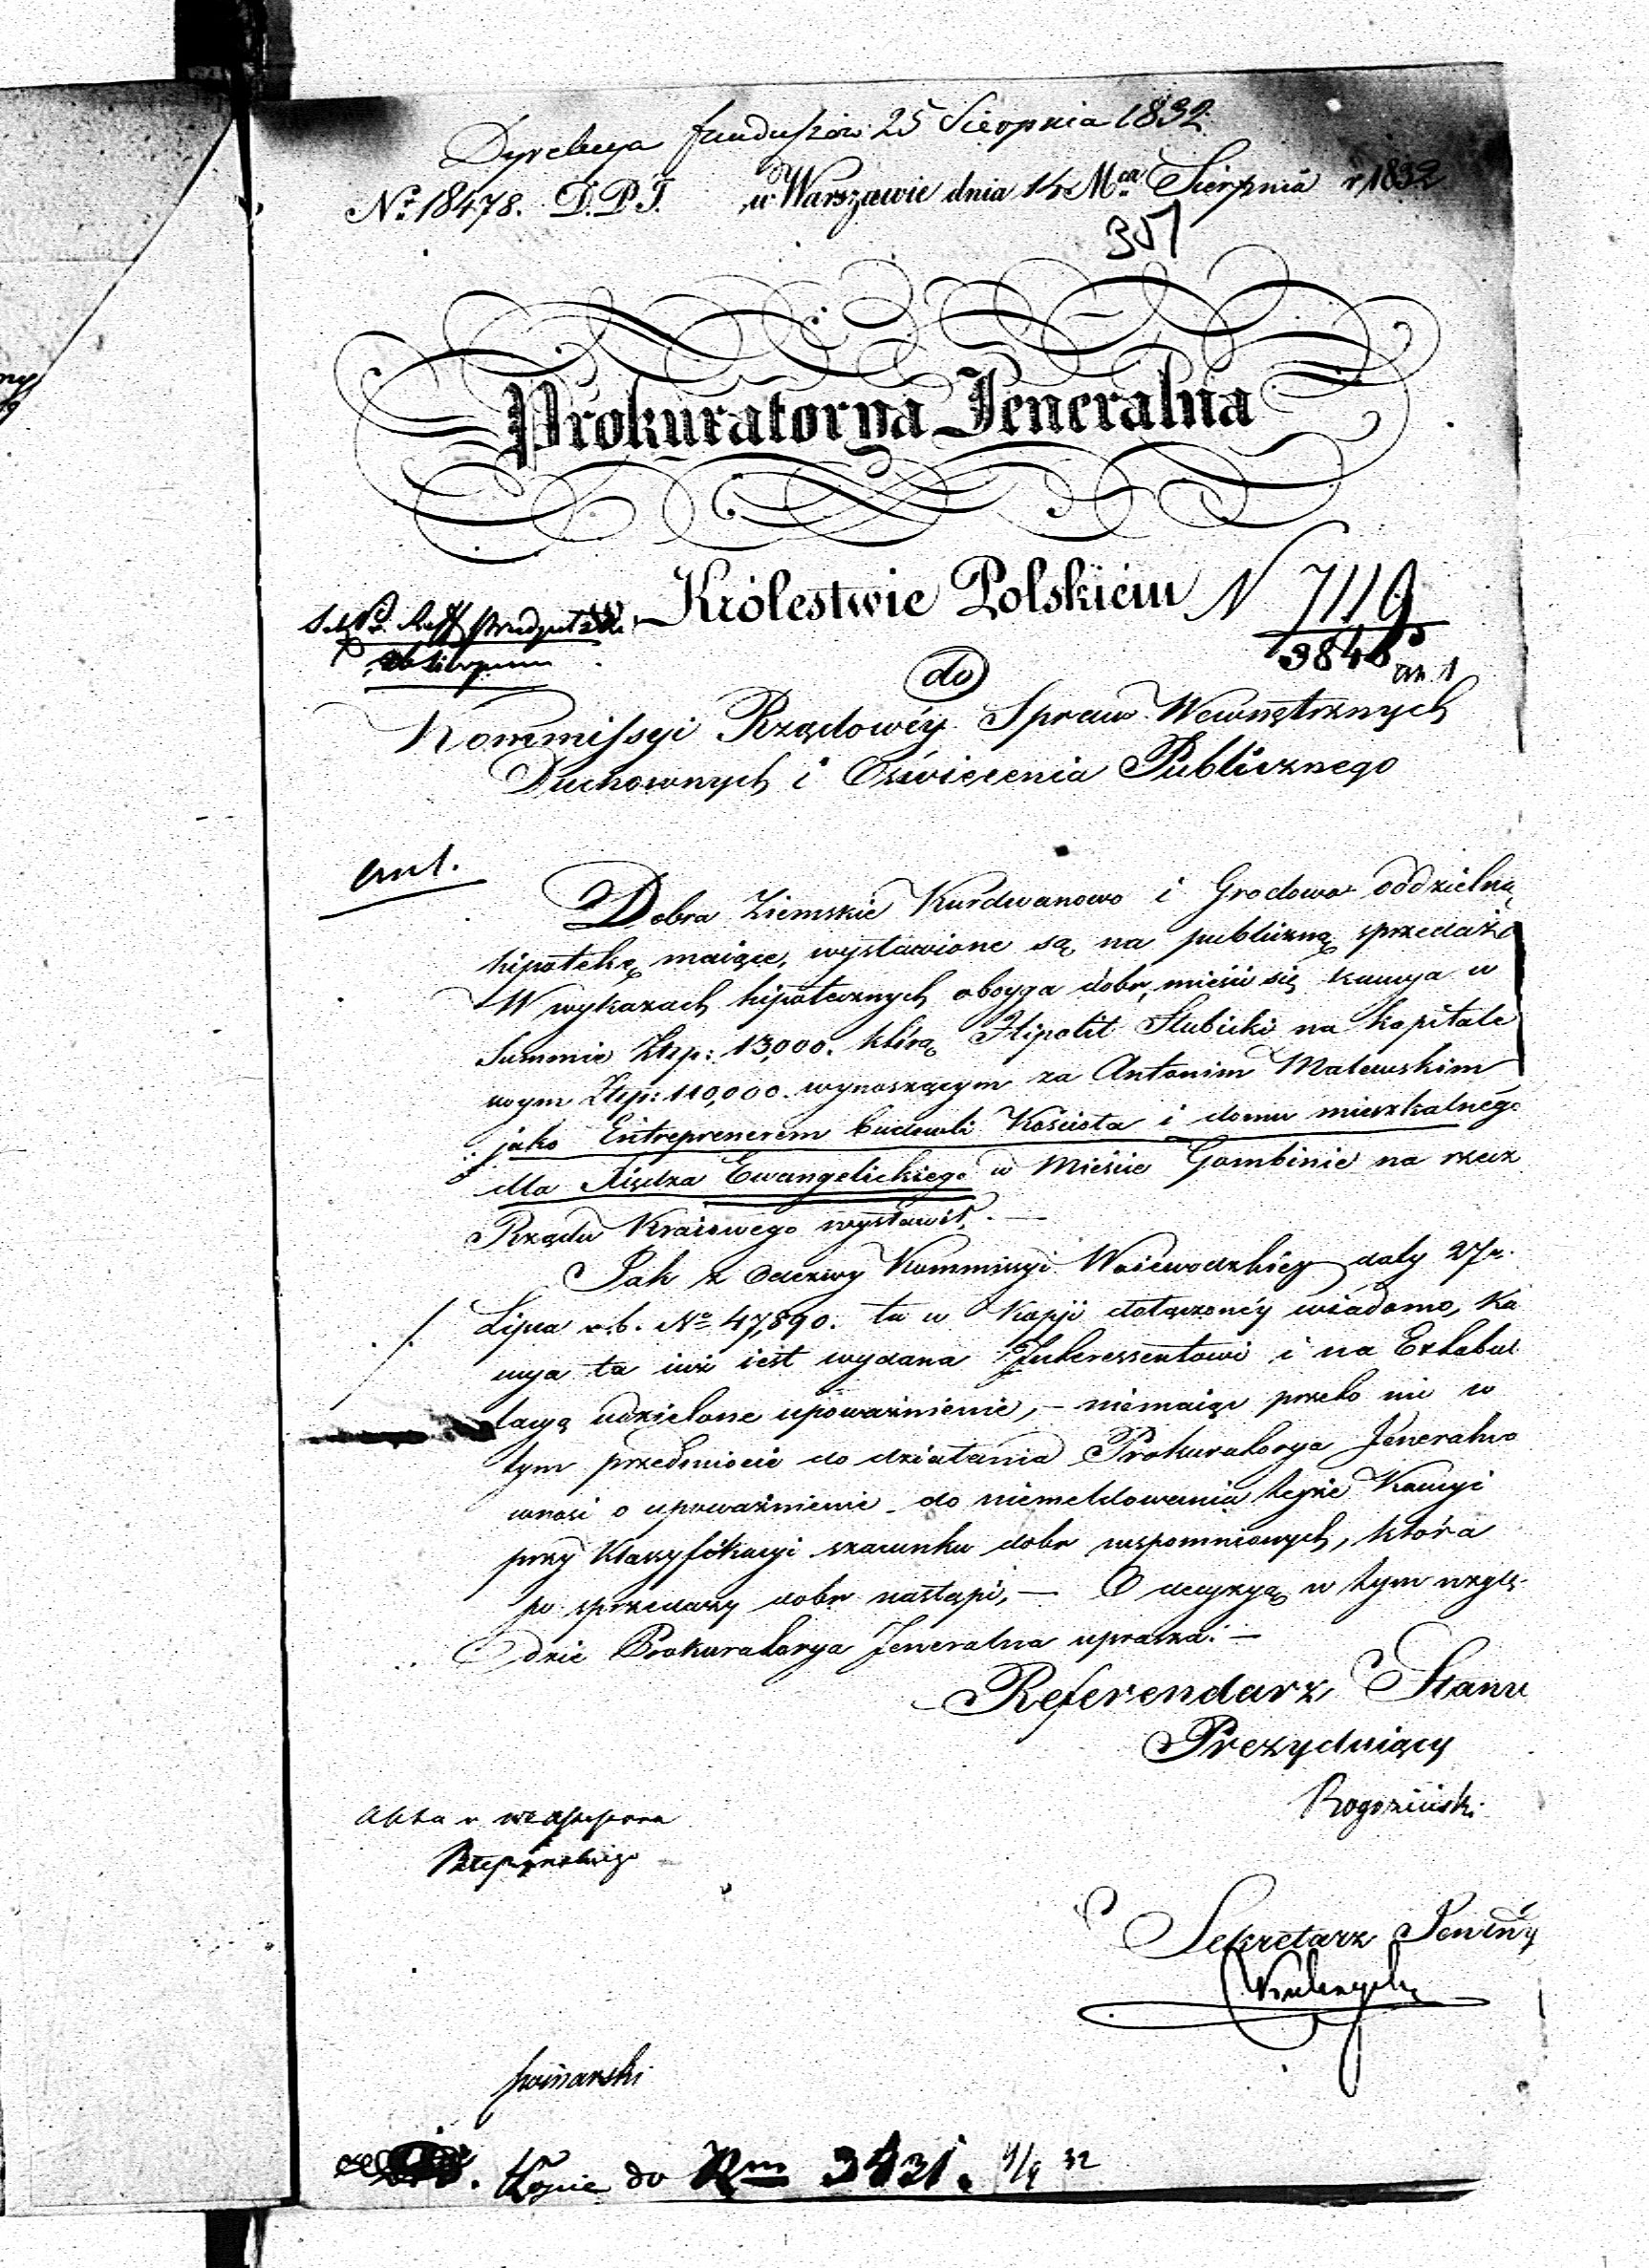 Dyrekcya funduszów 25 Sierpnia 1832
Nro 18478. D.P.J. w Warszawie dnia 14 Mca Sierpnia r 1832
357
Prokuratorya Jeneralna
w Królestwie Polskiém N 7119
3848
an. 1
do
Kommissyi Rządowéy Spraw Wewnętrznych
Duchownych i Oświecenia Publicznego
ant.
Dobra Ziemskie Kurdwanowo i Grodowo oddzielną
hipotekę maiące, wystawione są na publiczną sprzedaż
W wykazach hipotecznych oboyga dobr, mieści się kaucya w
Summie Złp: 13,000. którą Hipolit Słubicki na kapitale
swym Złp: 110,000. wynoszącym za Antonim Malewskim
jako Entreprenerem budowli Kościoła i domu mieszkalnego
dla Xiędza Ewangelickiego w Mieście Gombinie na rzecz
Rządu Kraiowego wystawił. —
Jak z Odezwy Kommissyi Woiewodzkiey daty 27 m.
Lipca r. b. No 47,890. tu w Kopji dołączonéy wiadomo, Ka
ucya ta iuż iest wydana Interessentowi i na Extabul
lacyą udzielone upoważnienie, — niemaiąc przeto nic w
tym przedmiocie do działania Prokuratorya Jeneralna
wnosi o upoważnienie do niemeldowania teyże Kaucyi
przy Klassyfikacyi szacunku dobr wspomnionych, która
po sprzedaży dobr nastąpi, — O decyzyą w tym wzglę-
dzie Prokuratorya Jeneralna uprasza. —
Referendarz Stanu
Prezyduiący
Rogoziński
Akta u
Sekretarz Jenlny
Kopie do 3431. 4/9 32